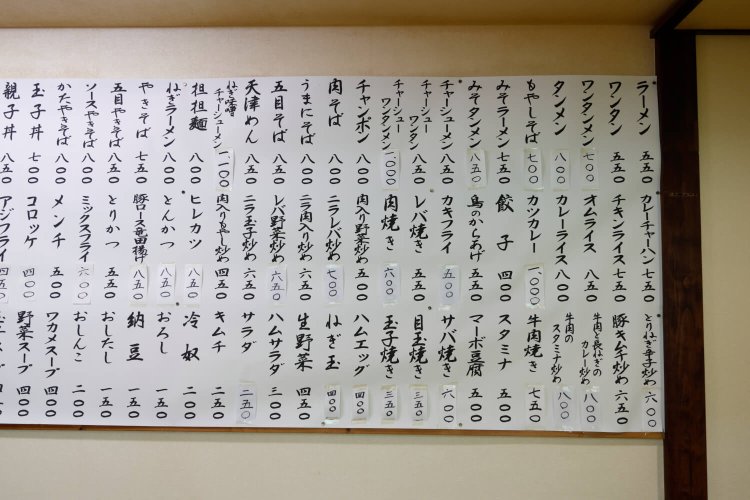 ラーメン 五五〇
ワンタン 五五〇
ワンタンメン 七〇〇
タンメン 八〇〇
もやしそば 七〇〇
みそラーメン 七五〇
みそタンメン 八五〇
チャーシューメン 八五〇
チャーシューワンタン 八五〇
チャーシューワンタンメン 一、〇〇〇
チャンポン 八〇〇
肉そば 八〇〇
うまにそば 八〇〇
五目そば 八五〇
天津めん 八五〇
ねぎ味噌チャーシューメン 一、一〇〇
担担麺 八〇〇
ねぎラーメン 八〇〇
やきそば 七五〇
五目やきそば 八五〇
ソースやきそば 八〇〇
かたやきそば 八〇〇
玉子丼 七〇〇
親子丼 八五〇
カレーチャーハン 七五〇
チキンライス 七五〇
オムライス 八五〇
カレーライス 八〇〇
カツカレー 一、〇〇〇
餃子 四〇〇
鳥のからあげ 五五〇
カキフライ 五五〇
レバ焼き 五五〇
肉焼き 六〇〇
肉入り野菜炒め 五〇〇
ニラレバ炒め 七〇〇
ニラ肉入り炒め 六五〇
レバ野菜炒め 六五〇
ニラ玉子炒め 六五〇
肉入りもやし炒め 四五〇
ヒレカツ 八五〇
とんかつ 八五〇
豚ロース竜田揚げ 八五〇
とりかつ 五五〇
ミックスフライ 六〇〇
メンチ 五〇〇
コロッケ 四〇〇
アジフライ 四五〇
とりねぎ辛子炒め 六〇〇
豚キムチ炒め 六五〇
牛肉と長ねぎのカレー炒め 八〇〇
牛肉のスタミナ炒め 八〇〇
牛肉焼き 七五〇
スタミナ 五〇〇
マーボ豆腐 五〇〇
サバ焼き 六〇〇
目玉焼き 三五〇
玉子焼き 三五〇
ハムエッグ 四〇〇
ねぎ玉 四〇〇
生野菜 四五〇
ハムサラダ 三〇〇
サラダ 二五〇
キムチ 二五〇
冷奴 二〇〇
おろし 一五〇
納豆 一五〇
おしたし 一五〇
おしんこ 二〇〇
ワカメスープ 四〇〇
野菜スープ 四〇〇